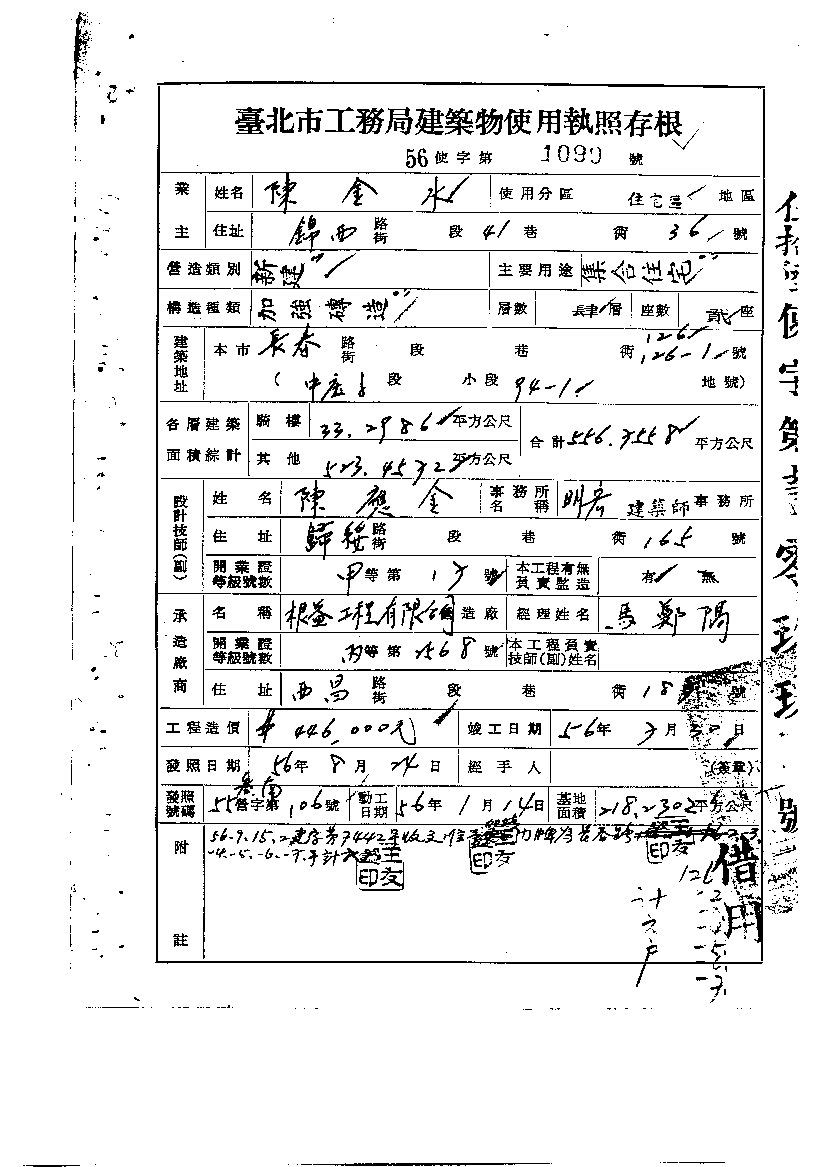 臺北市工務局建築物使用執照存根
56 使字第 1090 號
業主 姓名 陳金水 使用分區 住宅區 地區
住址 錦西 路街 段 41 巷 街 36 號
營造類別 新建 主要用途 集合住宅
構造種類 加強磚造 層數 肆層 座數 貳座
建築地址 本市 長春 路街 段 巷 街 126 126-1 號
( 中庄 段 小段 94-1 地號)
各層建築面積綜計 騎樓 33.2986 平方公尺 合計 556.7558 平方公尺
其他 523.4572 平方公尺
設計技師(副) 姓名 陳應金 事務所名稱 明彥 建築師事務所
住址 歸綏 路街 段 巷 街 165 號
開業證等級號數 甲等第 號 本工程有無負責監造 有 無
承造廠商 名稱 根益工程有限公司 造廠 經理姓名 馬鄭陽
開業證等級號數 丙等第 2568 號 本工程負責技師(副)姓名
住址 西昌 路街 段 巷 街 18 號
工程造價 446,000元 竣工日期 56年 7月 30日
發照日期 56年 8月 24日 經手人 (簽章)
發照號碼 55 營字第 106 號 動工日期 56年 1月 14日 基地面積 218.2302 平方公尺
附註 56.9.15.
王友印
王友印
126
-2
二十六戶
-5
借用
使字第壹零玖玖號